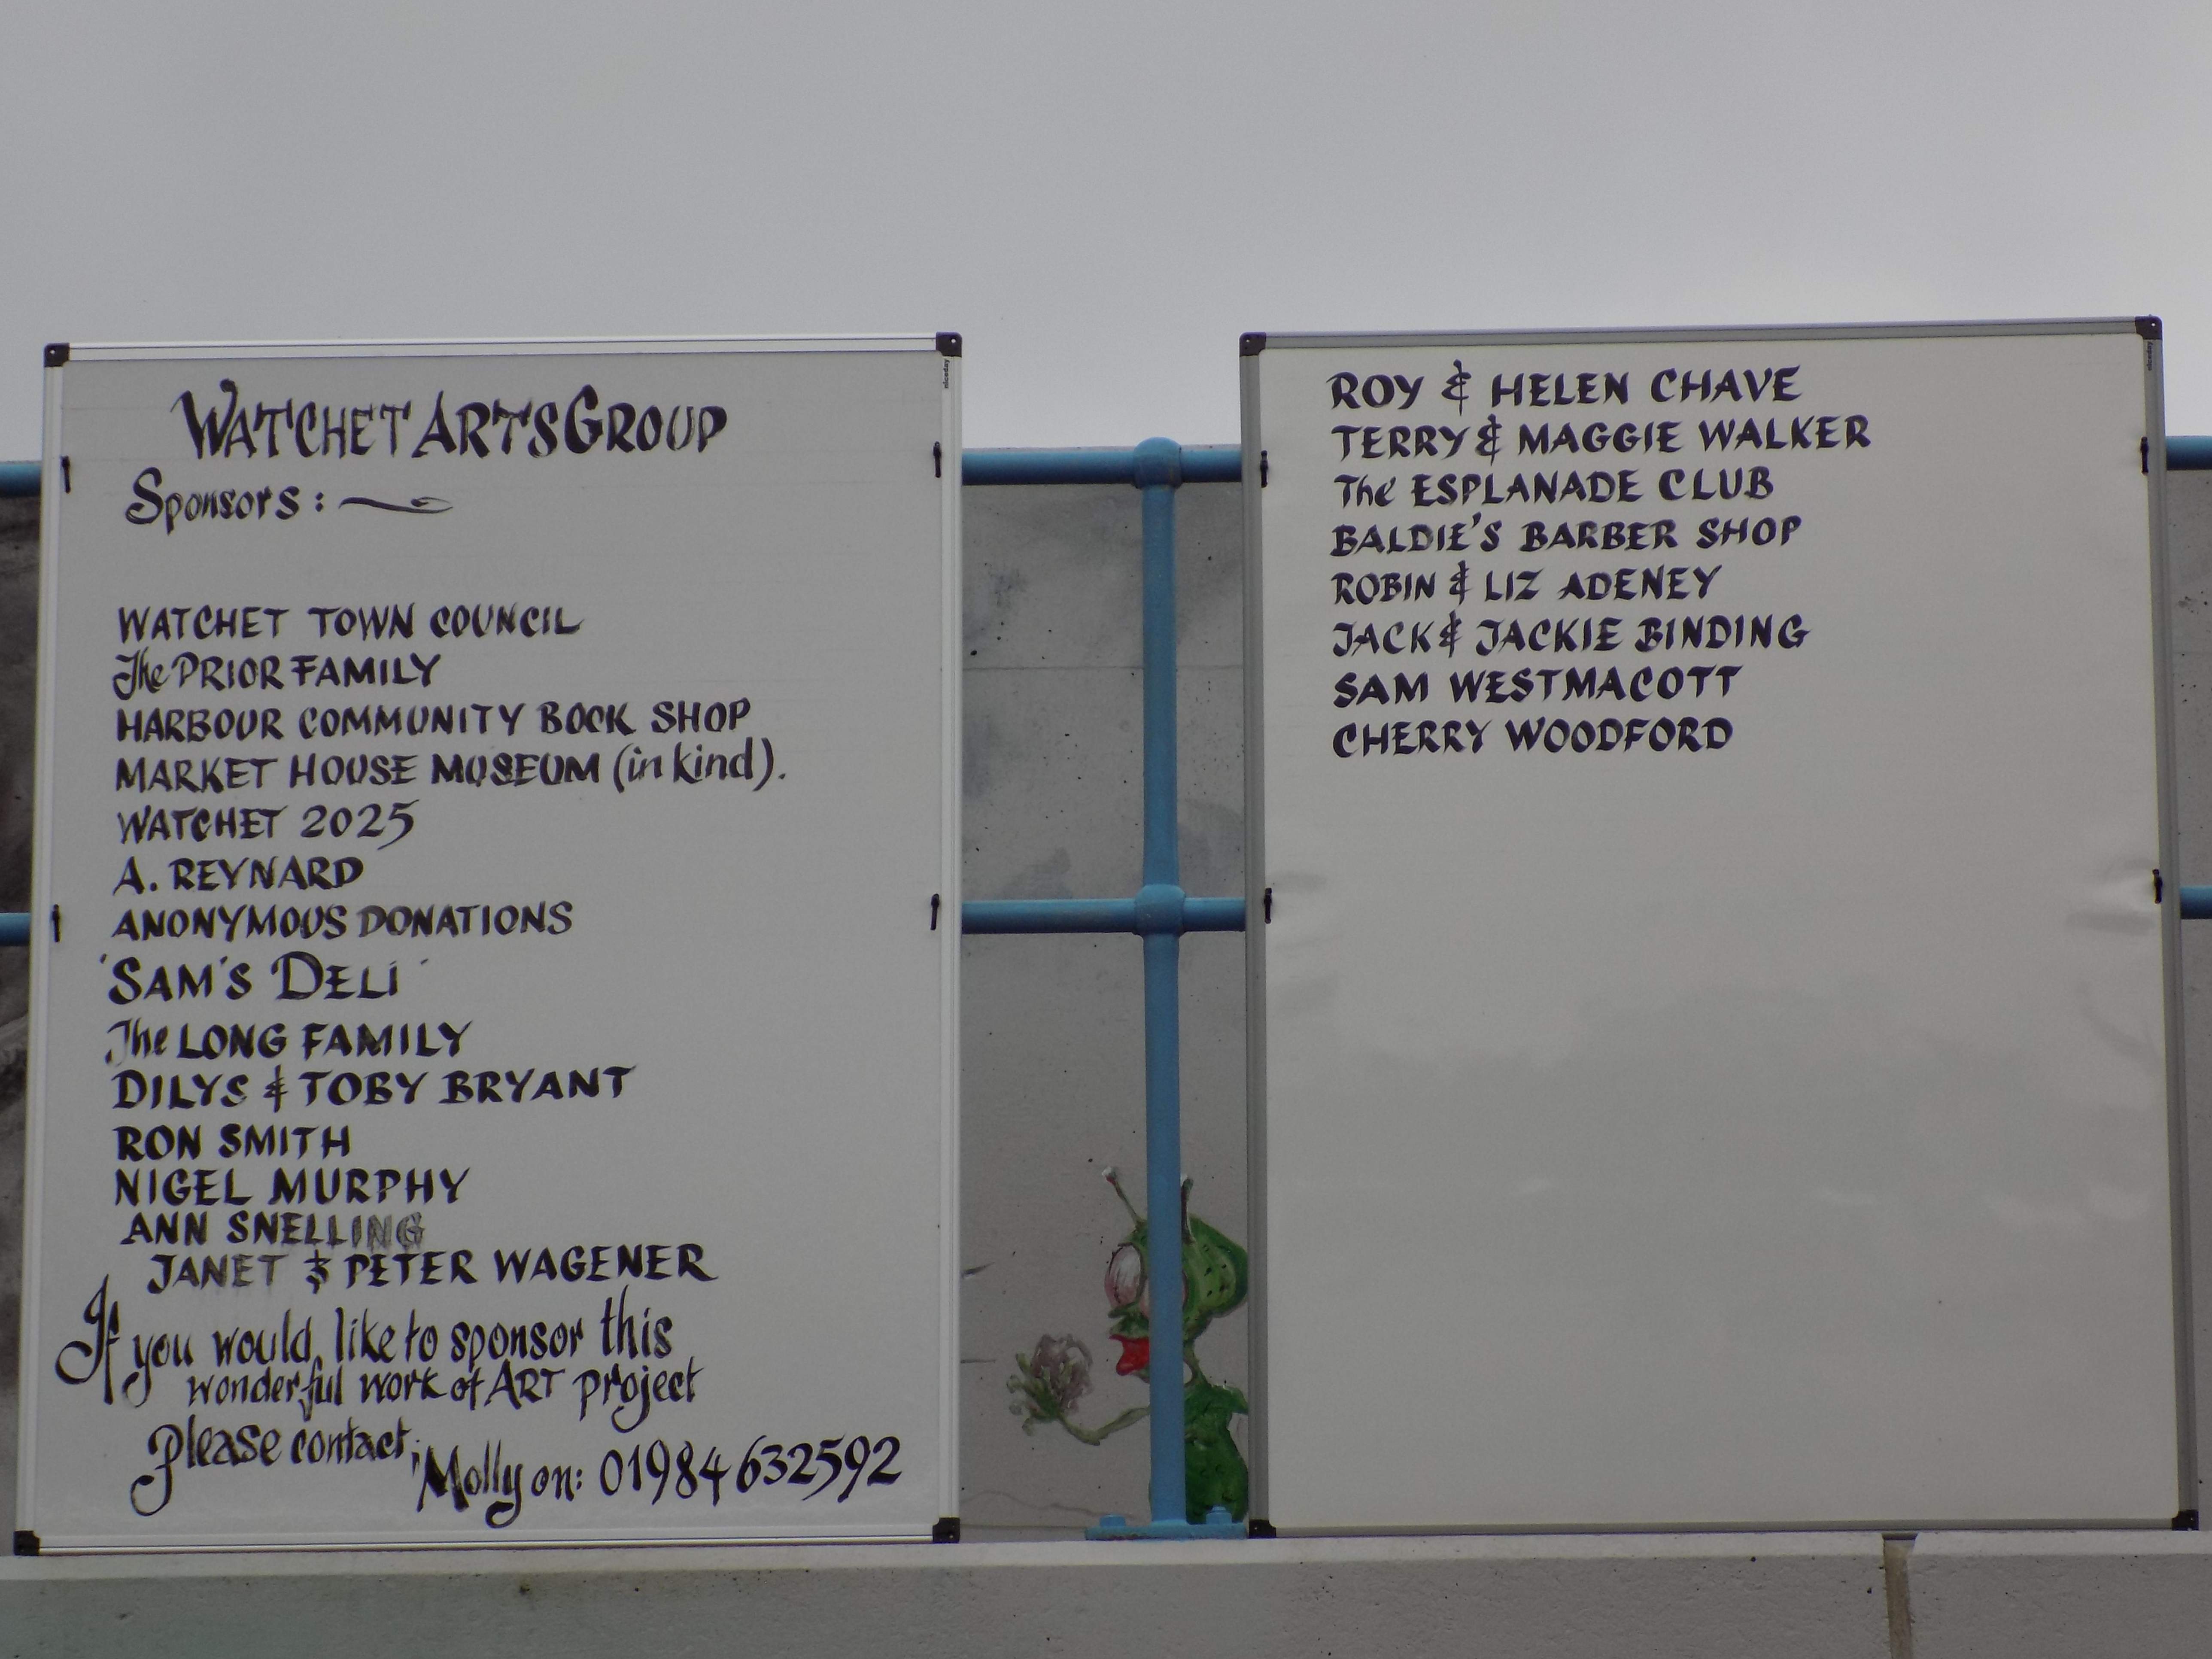 WATCHET ARTS GROUP
Sponsors:
WATCHET TOWN COUNCIL
The PRIOR FAMILY
HARBOUR COMMUNITY BOOK SHOP
MARKET HOUSE MUSEUM (in kind).
WATCHET 2025
A. REYNARD
ANONYMOUS DONATIONS
'SAM'S DELI'
The LONG FAMILY
DILYS & TOBY BRYANT
RON SMITH
NIGEL MURPHY
ANN SNELLING
JANET & PETER WAGENER
If you would like to sponsor this
wonderful work of ART project
Please contact;
Molly on: 01984 632592
ROY & HELEN CHAVE
TERRY & MAGGIE WALKER
The ESPLANADE CLUB
BALDIE'S BARBER SHOP
ROBIN & LIZ ADENEY
JACK & JACKIE BINDING
SAM WESTMACOTT
CHERRY WOODFORD